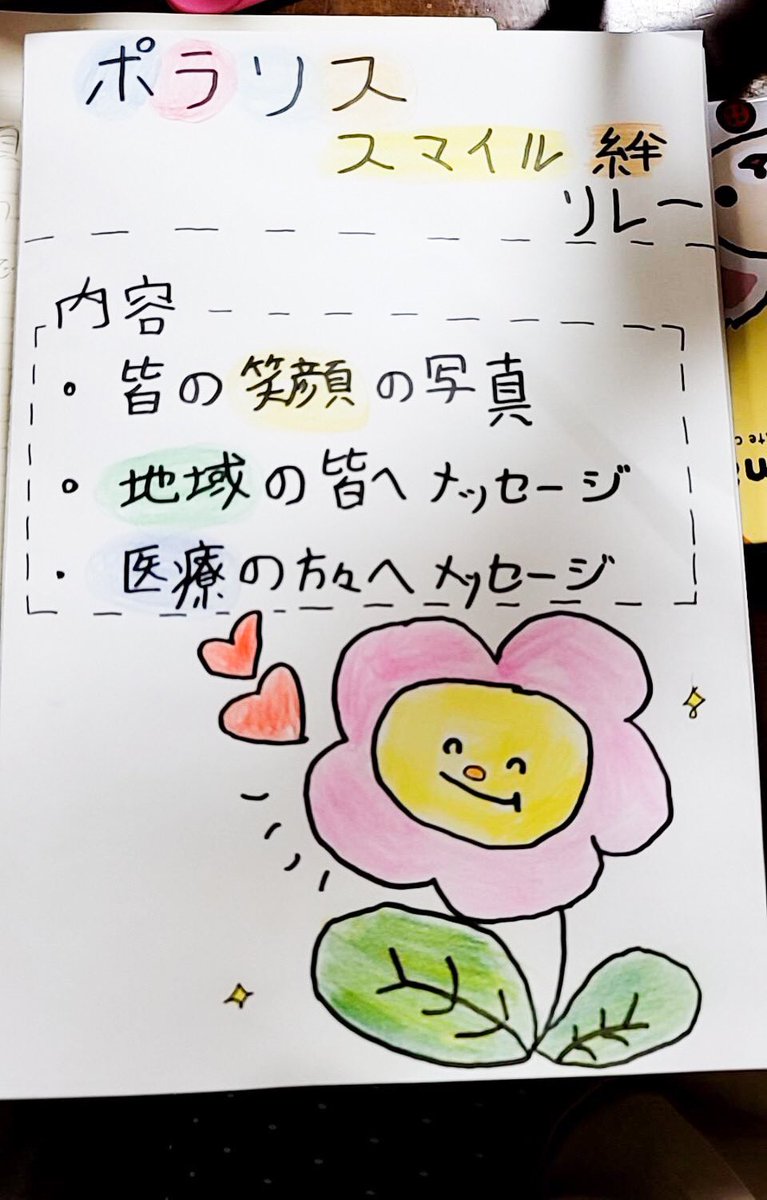 ポラリス
スマイル 絆
リレー
内容
・皆の笑顔の写真
・地域の皆へメッセージ
・医療の方々へメッセージ